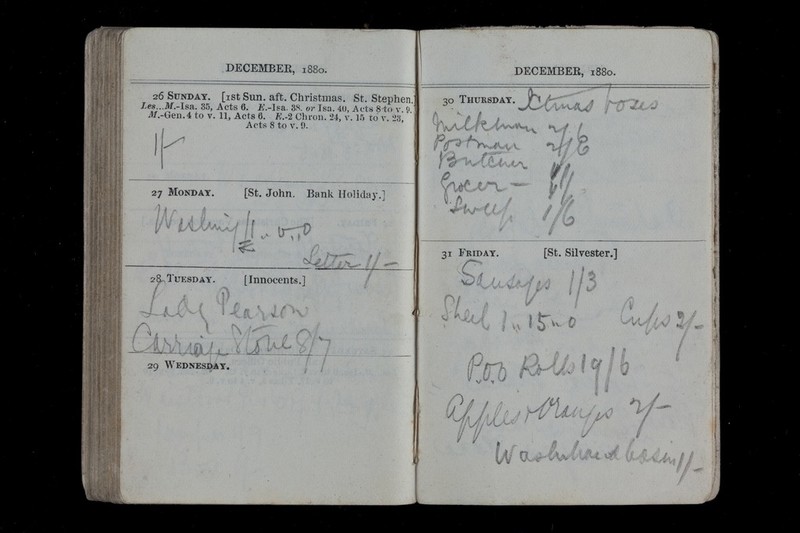 DECEMBER, 1880.
26 SUNDAY. [1st Sun. aft. Christmas. St. Stephen.]
Les...M.-Isa. 35, Acts 6. E.-Isa. 38. or Isa. 40, Acts 8 to v. 9.
M.-Gen. 4 to v. 11, Acts 6. E.-2 Chron. 24, v. 15 to v. 23,
Acts 8 to v. 9.
1/-
27 MONDAY. [St. John. Bank Holiday.]
Washing
Letter 1/-
28 TUESDAY. [Innocents.]
Lady Pearson
Carriage Stone 8/7
29 WEDNESDAY.
DECEMBER, 1880.
30 THURSDAY. Xtmas boxes
Milkman
Postman 2/6
Butcher
Grocer —
Sweep 1/6
31 FRIDAY. [St. Silvester.]
Sausages 1/3
1,, 15,, 0 Cups 2/-
P.O.O Rolls 19/6
Apples & Oranges 2/-
Washhand basin 1/-